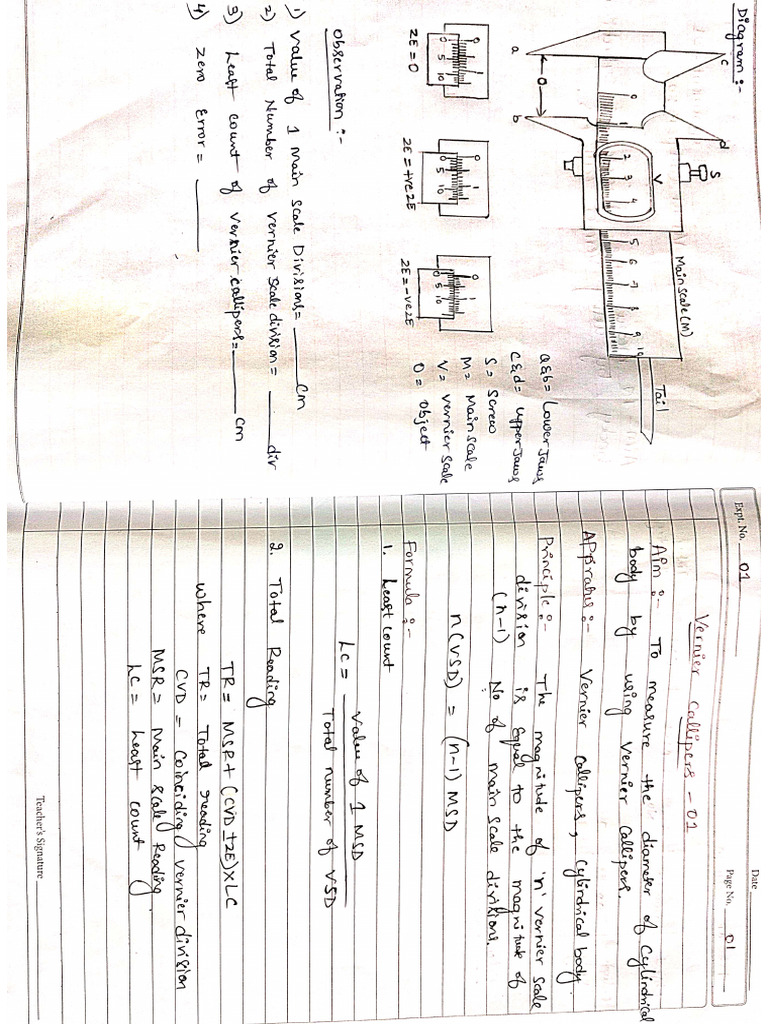 Diagram :-
c
d
S
V
Main Scale (M)
0 1 2 3 4 5 6 7 8 9 10
Tail
a
O
b
a&b = Lower Jaws
C&d = upper Jaws
S = Screw
M = Main Scale
V = Vernier Scale
O = Object
0 1
0 5 10
ZE = 0
0 1
0 5 10
ZE = +ve ZE
0 1
0 5 10
ZE = -ve ZE
Observation :-
1) Value of 1 Main Scale Divisions = ____ cm
2) Total Number of vernier scale division = ____ div
3) Least count of vernier callipers = ____ cm
4) Zero Error = ____
Date
Expt. No. 01
Page No. 01
Vernier Callipers - 01
Aim :- To measure the diameter of Cylindrical
body by using Vernier Callipers.
Appratus :- Vernier Callipers, Cylindrical body.
Principle :- The magnitude of 'n' vernier scale
division is Equal to the magnitude of
(n-1) No of main scale divisions.
n(VSD) = (n-1) MSD
Formula :-
1. Least count
LC = Value of 1 MSD
Total number of VSD
2. Total Reading
TR = MSR + (CVD ± ZE) × LC
where TR = Total reading
CVD = Coinciding vernier division
MSR = Main scale Reading.
LC = Least count
Teacher's Signature